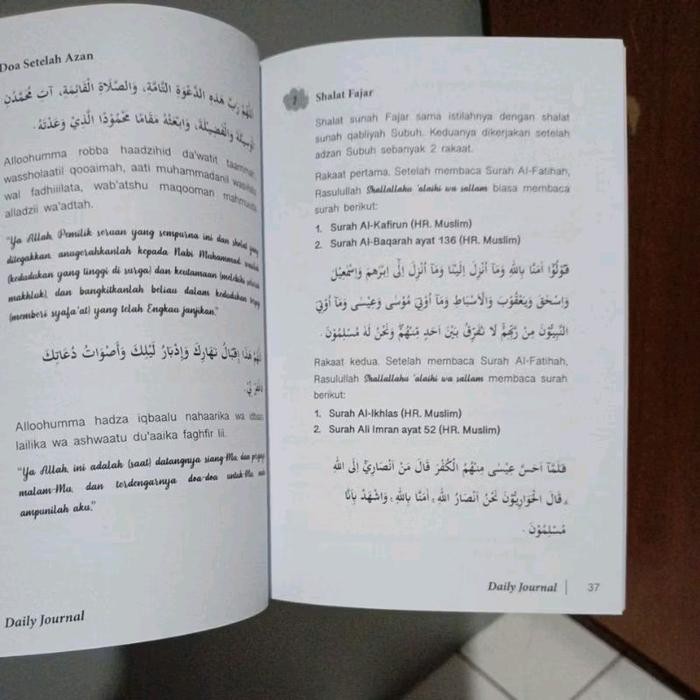 Doa Setelah Azan
اَللّٰهُمَّ رَبَّ هٰذِهِ الدَّعْوَةِ التَّامَّةِ، وَالصَّلَاةِ الْقَائِمَةِ، آتِ مُحَمَّدَنِ
الْوَسِيْلَةَ وَالْفَضِيْلَةَ، وَابْعَثْهُ مَقَامًا مَحْمُوْدًا الَّذِيْ وَعَدْتَهُ.
Alloohumma robba haadzihid da'watit taammah,
wassholaatil qooaimah, aati muhammadanil wasiilata
wal fadhiilata, wab'atshu maqooman mahmuuda
alladzii wa'adtah.
"Ya Allah, Pemilik seruan yang sempurna ini dan sholat yang
ditegakkan, anugerahkanlah kepada Nabi Muhammad
(kedudukan yang tinggi di surga) dan keutamaan (melebihi
makhluk), dan bangkitkanlah beliau dalam kedudukan terpuji
(memberi syafa'at) yang telah Engkau janjikan."
هٰذَا إِقْبَالُ نَهَارِكَ وَإِدْبَارُ لَيْلِكَ وَأَصْوَاتُ دُعَاتِكَ
Alloohumma hadza iqbaalu nahaarika wa
lailika wa ashwaatu du'aaika faghfir lii.
"Ya Allah, ini adalah (saat) datangnya siang-Mu, dan
malam-Mu, dan terdengarnya doa-doa untuk-Mu,
ampunilah aku."
Daily Journal
7
Shalat Fajar
Shalat sunah Fajar sama istilahnya dengan shalat
sunah qabliyah Subuh. Keduanya dikerjakan setelah
adzan Subuh sebanyak 2 rakaat.
Rakaat pertama. Setelah membaca Surah Al-Fatihah,
Rasulullah Shallallahu 'alaihi wa sallam biasa membaca
surah berikut:
1. Surah Al-Kafirun (HR. Muslim)
2. Surah Al-Baqarah ayat 136 (HR. Muslim)
قُوْلُوْٓا اٰمَنَّا بِاللّٰهِ وَمَآ اُنْزِلَ اِلَيْنَا وَمَآ اُنْزِلَ اِلٰٓى اِبْرٰهٖمَ وَاِسْمٰعِيْلَ
وَاِسْحٰقَ وَيَعْقُوْبَ وَالْاَسْبَاطِ وَمَآ اُوْتِيَ مُوْسٰى وَعِيْسٰى وَمَآ اُوْتِيَ
النَّبِيُّوْنَ مِنْ رَّبِّهِمْ لَا نُفَرِّقُ بَيْنَ اَحَدٍ مِّنْهُمْ وَنَحْنُ لَهٗ مُسْلِمُوْنَ.
Rakaat kedua. Setelah membaca Surah Al-Fatihah,
Rasulullah Shallallahu 'alaihi wa sallam membaca surah
berikut:
1. Surah Al-Ikhlas (HR. Muslim)
2. Surah Ali Imran ayat 52 (HR. Muslim)
فَلَمَّآ اَحَسَّ عِيْسٰى مِنْهُمُ الْكُفْرَ قَالَ مَنْ اَنْصَارِيْٓ اِلَى اللّٰهِ
قَالَ الْحَوَارِيُّوْنَ نَحْنُ اَنْصَارُ اللّٰهِ اٰمَنَّا بِاللّٰهِ وَاشْهَدْ بِاَنَّا
مُسْلِمُوْنَ.
Daily Journal | 37